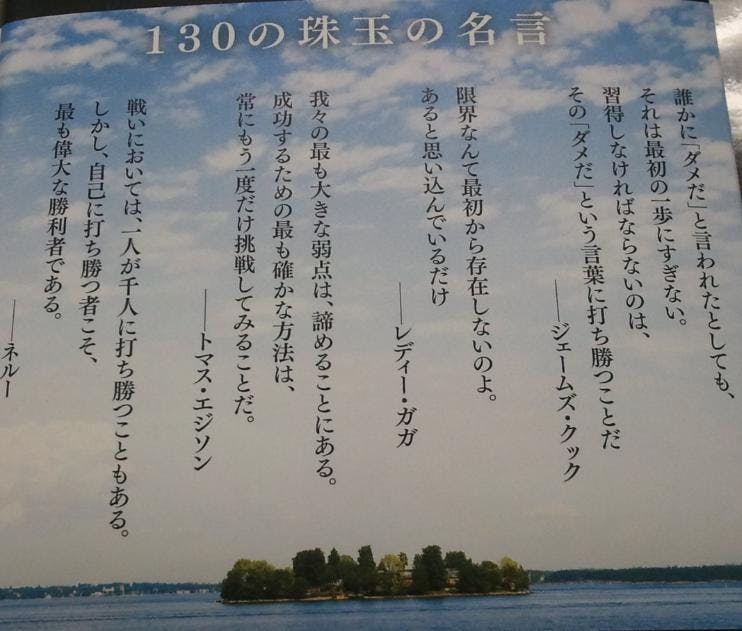 130の珠玉の名言
誰かに「ダメだ」と言われたとしても、
それは最初の一歩にすぎない。
習得しなければならないのは、
その「ダメだ」という言葉に打ち勝つことだ
——ジェームズ・クック
限界なんて最初から存在しないのよ。
あると思い込んでいるだけ
——レディー・ガガ
我々の最も大きな弱点は、諦めることにある。
成功するための最も確かな方法は、
常にもう一度だけ挑戦してみることだ。
——トマス・エジソン
戦いにおいては、一人が千人に打ち勝つこともある。
しかし、自己に打ち勝つ者こそ、
最も偉大な勝利者である。
——ネルー